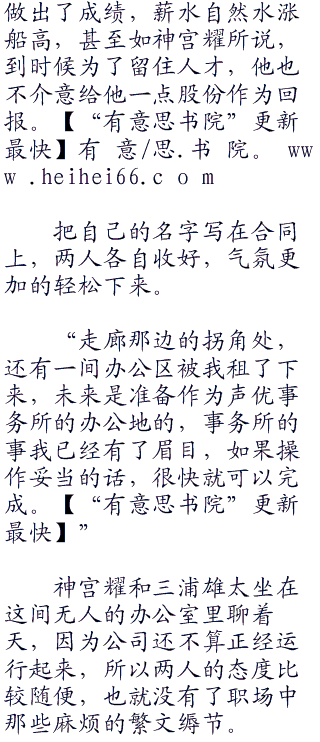 做出了成绩，薪水自然水涨
船高，甚至如神宫耀所说，
到时候为了留住人才，他也
不介意给他一点股份作为回
报。【“有意思书院”更新
最快】有 意/思.书 院。 ww
w .heihei66.c o m
把自己的名字写在合同
上，两人各自收好，气氛更
加的轻松下来。
“走廊那边的拐角处，
还有一间办公区被我租了下
来，未来是准备作为声优事
务所的办公地的，事务所的
事我已经有了眉目，如果操
作妥当的话，很快就可以完
成。【“有意思书院”更新
最快】”
神宫耀和三浦雄太坐在
这间无人的办公室里聊着
天，因为公司还不算正经运
行起来，所以两人的态度比
较随便，也就没有了职场中
那些麻烦的繁文缛节。